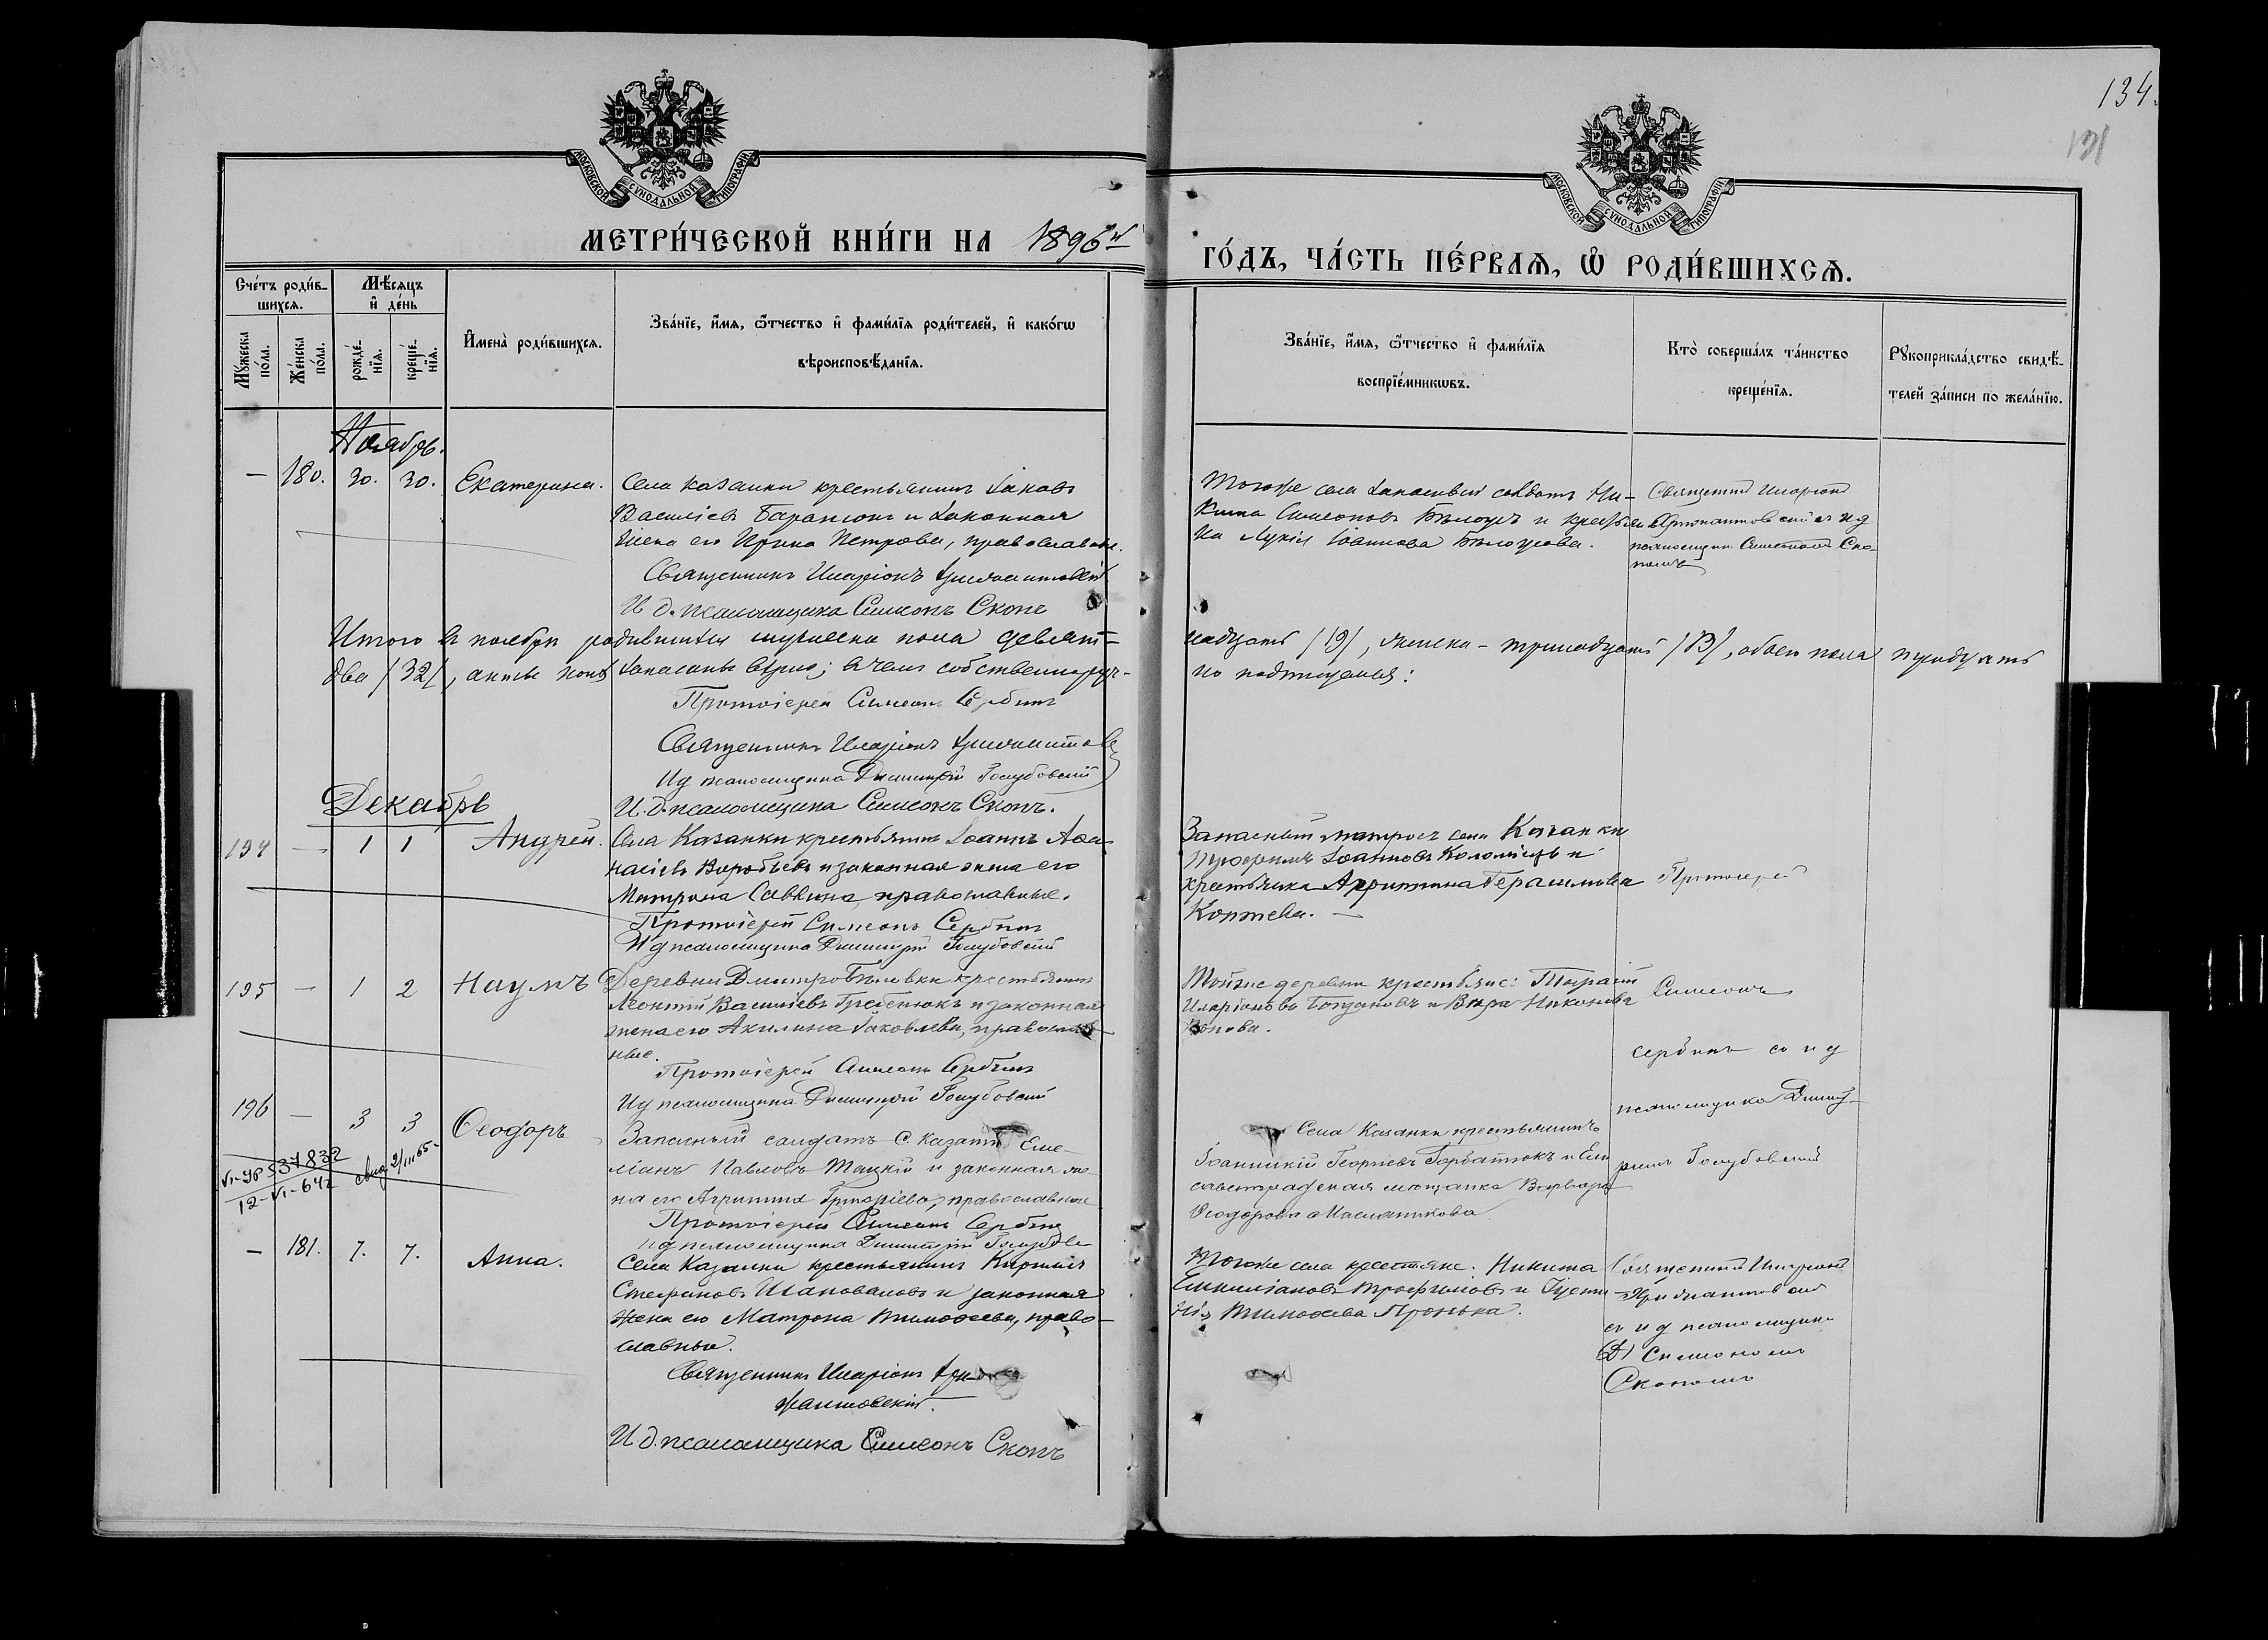 134.
121
МОСКОВСКОЙ СУНОДАЛЬНОЙ ТИПОГРАФІИ
МОСКОВСКОЙ СУНОДАЛЬНОЙ ТИПОГРАФІИ
МЕТРИ́ЧЕСКОЙ КНИ́ГИ НА 1896й
ГО́ДЪ, ЧА́СТЬ ПЕ́РВАѦ, Ѡ РОДИ́ВШИХСѦ.
Сче́тъ роди́в-
шихсѧ.
Мѣ́сѧцъ
и де́нь
Мꙋ́жеска
по́ла.
Же́нска
по́ла.
рожде́-
нїѧ.
креще́-
нїѧ.
И҆мена̀ роди́вшихсѧ.
Зва́нїе, и҆́мѧ, ѻ҆́тчество и҆ фами́лїѧ роди́телей, и҆ како́гѡ
вѣроисповѣ́данїѧ.
Зва́нїе, и҆́мѧ, ѻ҆́тчество и҆ фами́лїѧ
воспрїе́мникѡвъ.
Кто̀ соверша́лъ та́инство
креще́нїѧ.
Рꙋкоприкла́дство свидѣ́-
телей за́писи по жела́нїю.
Ноябрь.
— 180. 30. 30. Екатерина.
Села Казанки крестьянинъ Іаковъ
Василіевъ Баранюкъ и законная
жена его Ирина Петрова, православн.
Священникъ Иларіонъ
И. д. псаломщика Симеонъ Скопъ
Тогоже села запасный солдатъ Ни-
кита Симеоновъ Бѣлоусъ и крестьян
ка Лукія Іоаннова Бѣлоусова.
Священникъ Иларіонъ
съ и д
псаломщик. Симеономъ Ско-
помъ
Итого въ ноябрѣ родившихся мужеска пола девят-
надцать /19/, женска - тринадцать /13/, обоего пола тридцать
два /32/, записано вѣрно; въ чемъ собственноруч-
но подписуемся:
Протоіерей Симеонъ Сербинъ
Священникъ Иларіонъ
Ид псаломщика Димитрій Голубовскій
И. д. псаломщика Симеонъ Скопъ.
Декабрь
194 — 1 1 Андрей.
Села Казанки крестьянинъ Іоаннъ Аѳа-
насіевъ Воробьевъ и законная жена его
Матрона Саввина, православные.
Протоіерей Симеонъ Сербинъ
Ид псаломщика Димитрій Голубовскій
Запасный матросъ села Казанки
Іоанновъ Коломіецъ и
крестьянка Агрипина Герасимова
Коптева. —
Протоіерей
195 — 1 2 Наумъ
Деревни Дмитро-Бѣловки крестьянинъ
Леонтій Василіевъ Гребенюкъ и законная
жена его Акилина Іаковлева, православ-
ные.
Протоіерей Симеонъ Сербинъ
Ид псаломщика Димитрій Голубовскій
Тойже деревни крестьяне: Тарасій
Иларіоновъ Богдановъ и Вѣра Никонова
Попова.
Симеонъ
Сербинъ съ и д
псаломщика Димит-
196 — 3 3 Ѳеодоръ
Запасный солдатъ с. Казанки Еме-
ліанъ Павловъ Тацкій и законная же-
на его Агрипина Григоріева, православные
Протоіерей Симеонъ Сербинъ
Ид псаломщика Димитрій Голубовс
Села Казанки крестьянинъ
Іоанникій Георгіевъ Горбатюкъ и Ели
саветградская мѣщанка Варвара
Ѳеодорова Масленикова
ріемъ Голубовскій
VI-УР 537832
12-VI-64г
свид 2/III 65-
— 181. 7. 7. Анна.
Села Казанки крестьянинъ Кириллъ
Стефановъ Шаповаловъ и законная
жена его Матрона Тимоѳеева, право-
славные.
Священникъ Иларіонъ
И д. псаломщика Симеонъ Скопъ
Тогоже села крестьяне: Никита
Емиліановъ Трофимовъ и
Тимоѳеева Пронька.
Священникъ Иларіонъ
съ и д псаломщика
Симеономъ
Скопомъ